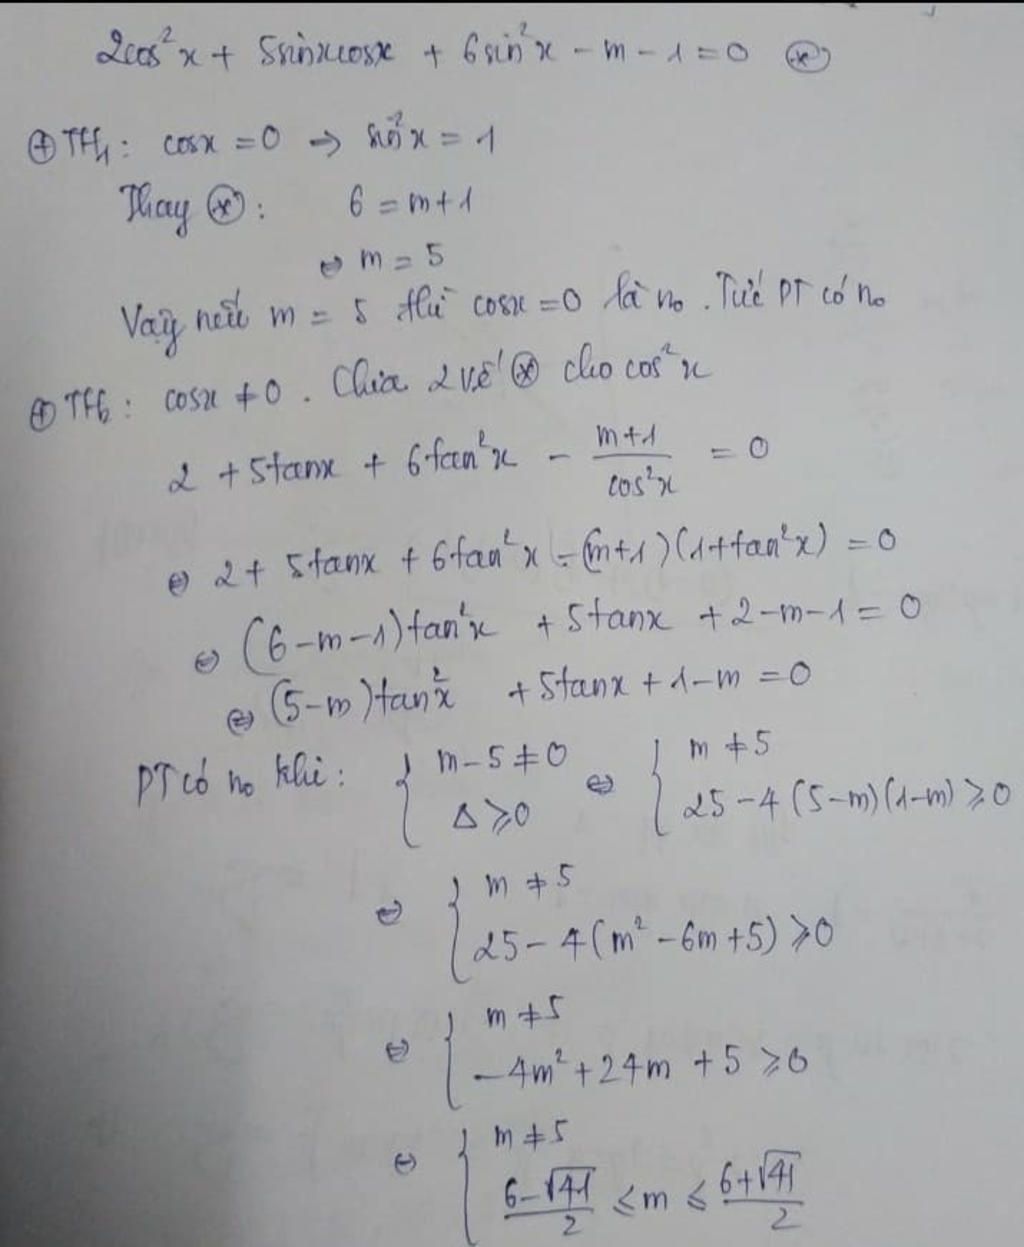 2cos²x + 5sinxcosx + 6sin²x - m - 1 = 0 (*)
⊕ TH₁: cosx = 0 → sin²x = 1
Thay (*): 6 = m+1
⇔ m = 5
Vậy nếu m = 5 thì cosx = 0 là no. Tức PT có no
⊕ TH₂: cosx ≠ 0. Chia 2 vế (*) cho cos²x
2 + 5tanx + 6tan²x - (m+1)/(cos²x) = 0
⇔ 2 + 5tanx + 6tan²x - (m+1)(1+tan²x) = 0
⇔ (6-m-1)tan²x + 5tanx + 2-m-1 = 0
⇔ (5-m)tan²x + 5tanx + 1-m = 0
PT có no khi: { m-5 ≠ 0 ; Δ ≥ 0 ⇔ { m ≠ 5 ; 25-4(5-m)(1-m) ≥ 0
⇔ { m ≠ 5 ; 25-4(m²-6m+5) ≥ 0
⇔ { m ≠ 5 ; -4m²+24m+5 ≥ 0
⇔ { m ≠ 5 ; (6-√41)/2 ≤ m ≤ (6+√41)/2